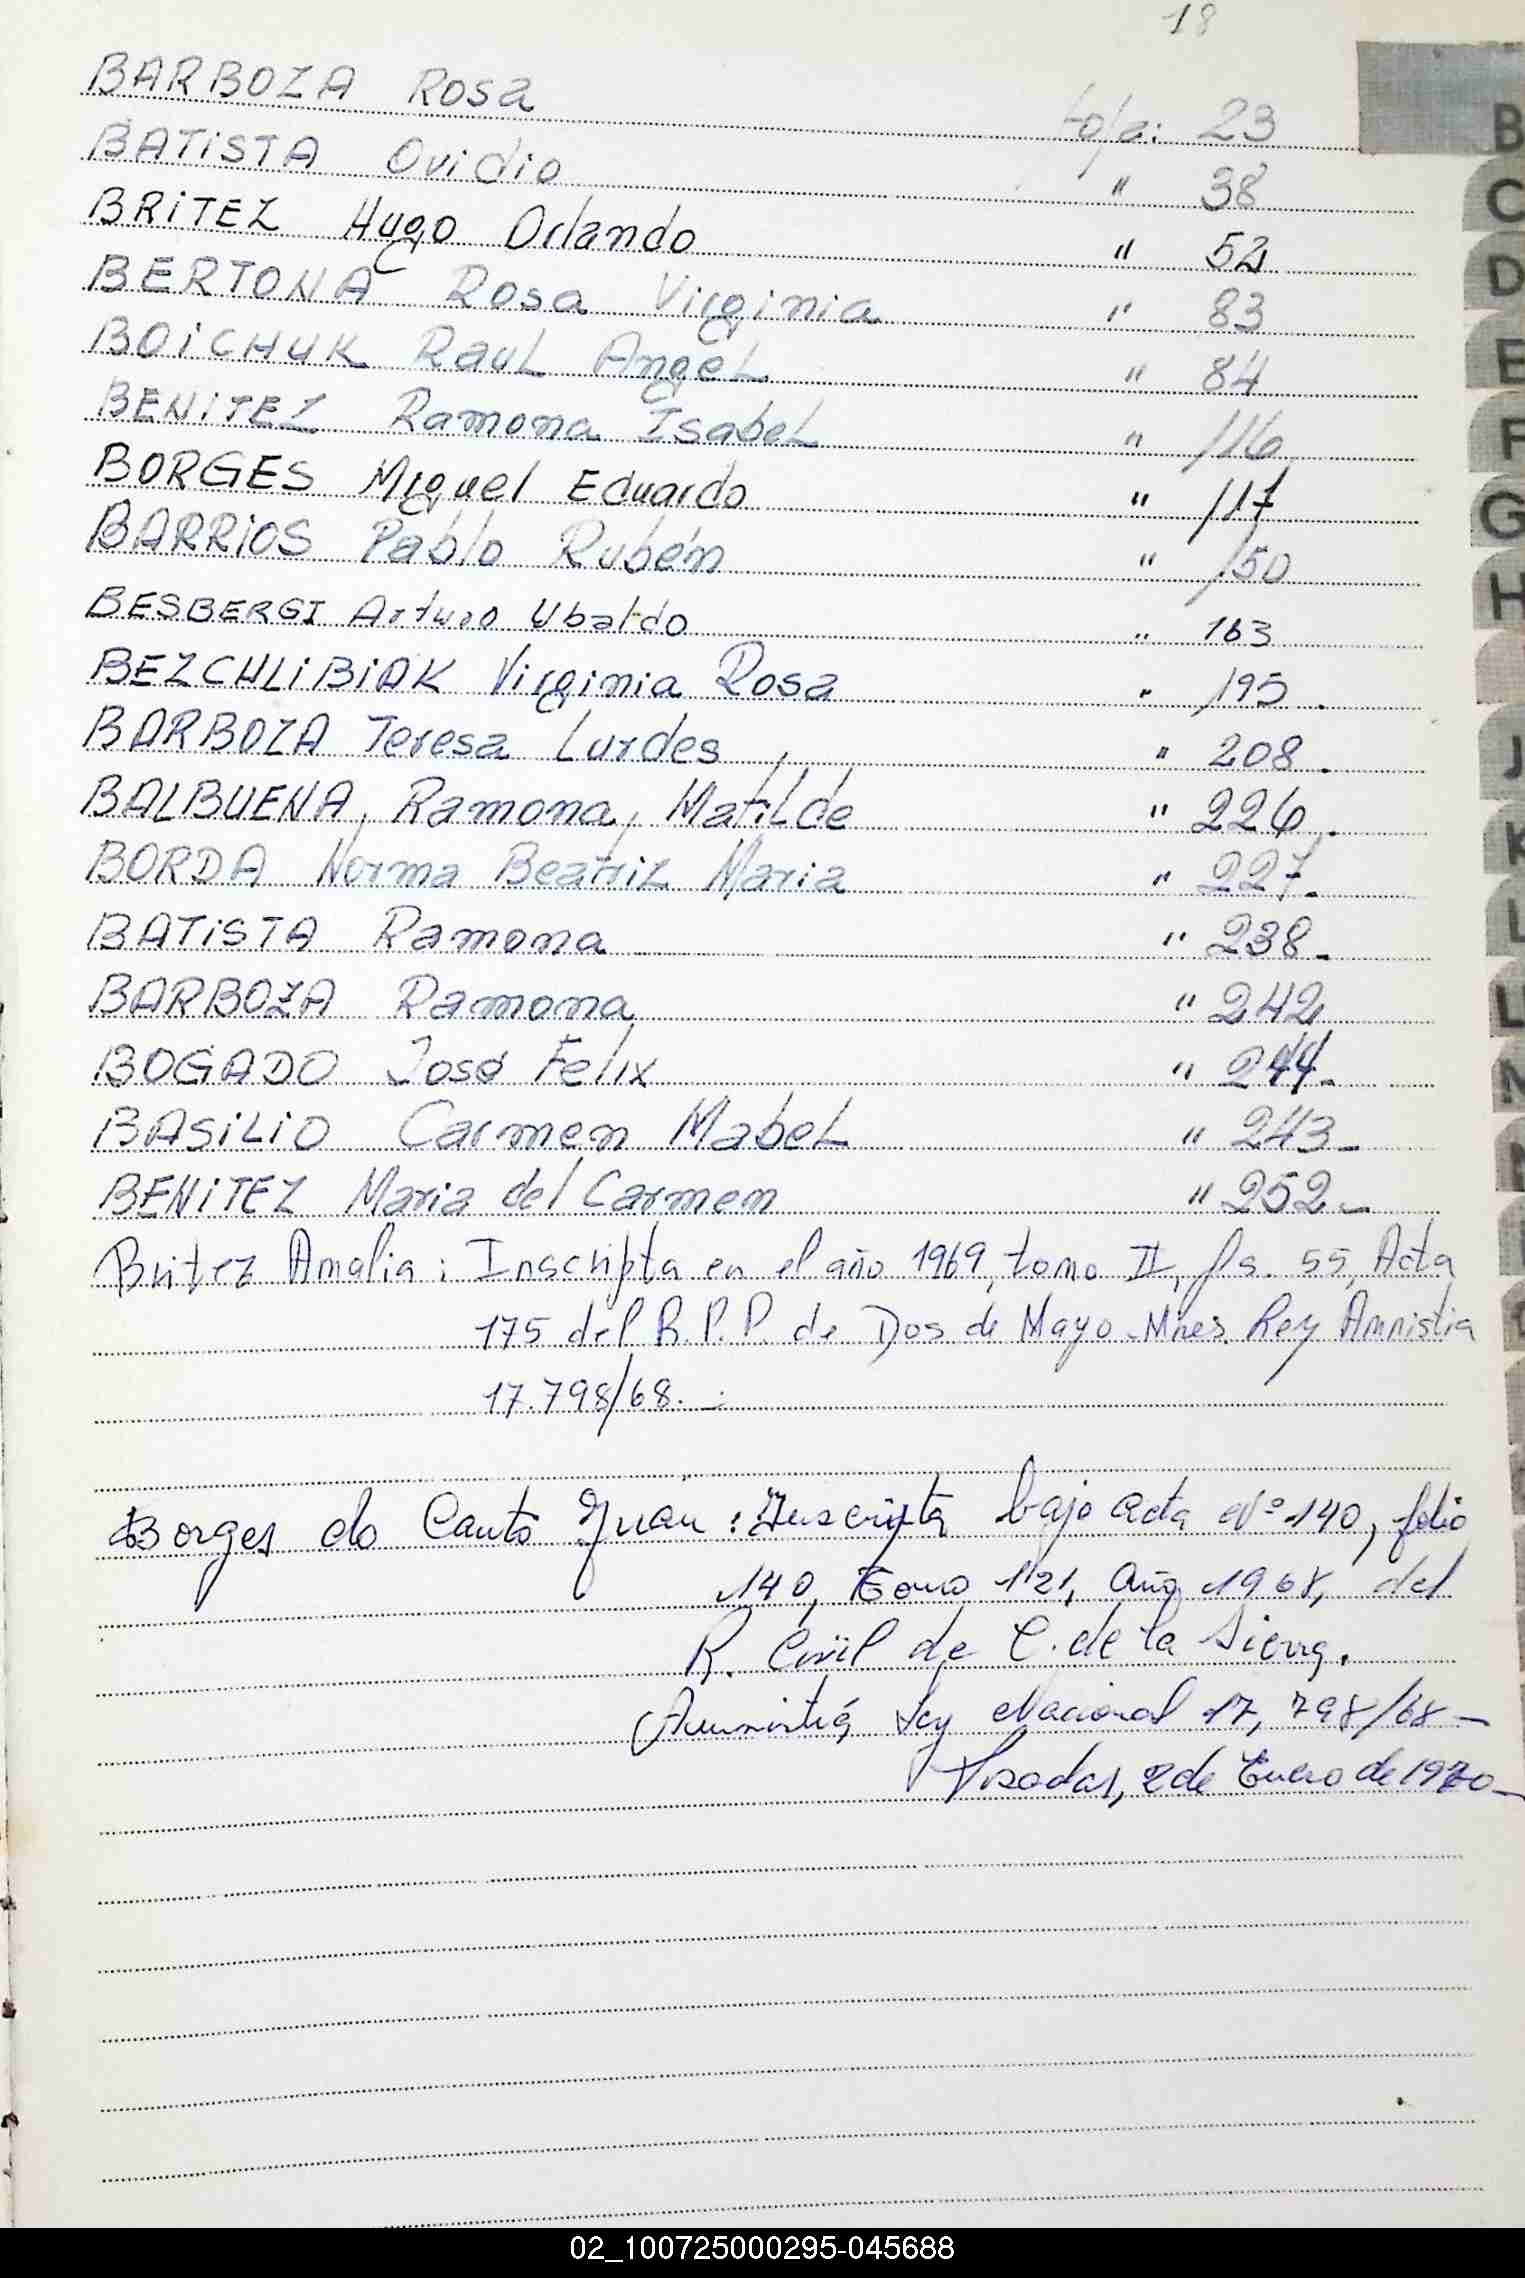 18
BARBOZA Rosa foja: 23
BATiSTA Ovidio " 38
BRiTEZ Hugo Orlando " 52
BERTONA Rosa Virginia " 83
BOiCHUK RauL AngeL " 84
BENiTEZ Ramona IsabeL " 116
BORGES Miguel Eduardo " 117
BARRiOS Pablo Rubén " 150
BESBERGI Arturo Ubaldo " 163
BEZCHLiBiAK Virginia Rosa " 195.
BARBOZA Teresa Lurdes " 208.
BALBUENA, Ramona, MatiLde " 226.
BORDA Norma Beatriz Maria " 227.
BATiSTA Ramona " 238.
BARBOZA Ramona " 242
BOGADO José Felix " 244.
BASiLiO Carmen MabeL " 243-
BENiTEZ Maria del Carmen " 252-
Britez Amalia: Inscripta en el año 1969, tomo II, fs. 55, Acta
175 del R.P.P. de Dos de Mayo-Mnes. Ley Amnistia
17.798/68.-
Borges do Canto Juan: Inscripta bajo acta Nº 140, folio
140, Tomo año 1968, del
R. Civil de C. de la Sierra.
Amnistia, Ley Nacional 17,798/68-
Posadas, 2 de Enero de 1970-
B
C
D
E
F
G
H
J
K
L
02_100725000295-045688